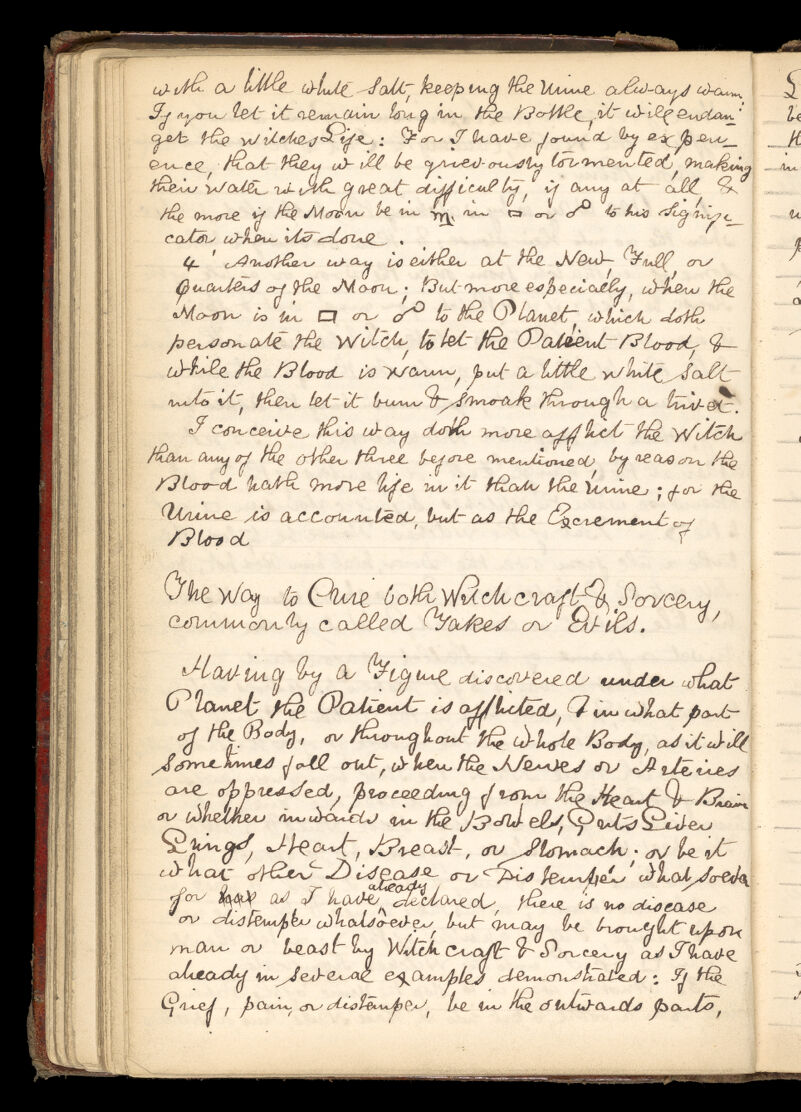 with a little white Salt, keeping the Urine always warm.
If you let it remain long in the Bottle, it will endan-
ger the witches Life: For I have found by experi-
ence, that they will be grievously tormented, making
their water with great difficulty, if any at all, &
the more if the Moon be in ♏ in □ or ☍ to his Signifi-
cator when its done.
4, Another way is either at the New, Full, or
Quarters of the Moon; But more especially, when the
Moon is in □ or ☍ to the Planet, which doth
personate the Witch, to let the Patient Blood, &
while the Blood is warm, put a little white Salt
into it, then let it burn & Smoak through a trivet.
I conceive this way doth more afflict the Witch
than any of the other three before mentioned, by reason the
Blood hath more life in it than the Urine; for the
Urine is accounted, but as the Excrement of
Blood
The Way to Cure both Witchcraft & Sorcery,
commonly called Takes or Evils.
Having by a Figure discovered under what
Planet the Patient is afflicted, & in what part
of the Body, or throughout the whole Body, as it will
Sometimes fall out, when the Nerves or Arteries
are oppressed, proceeding from the Heart & Brain
or whether inwards in the Bowels, Guts Liver
Lungs, Heart, Breast, or Stomach; or be it
what other Disease or Distemper whatsoever
for as I have already declared, there is no disease
or distemper whatsoever, but may be brought upon
man or beast by Witchcraft & Sorcery as I have
already in several examples demonstrated: If the
Grief, pain, or distemper, be in the outwards parts,